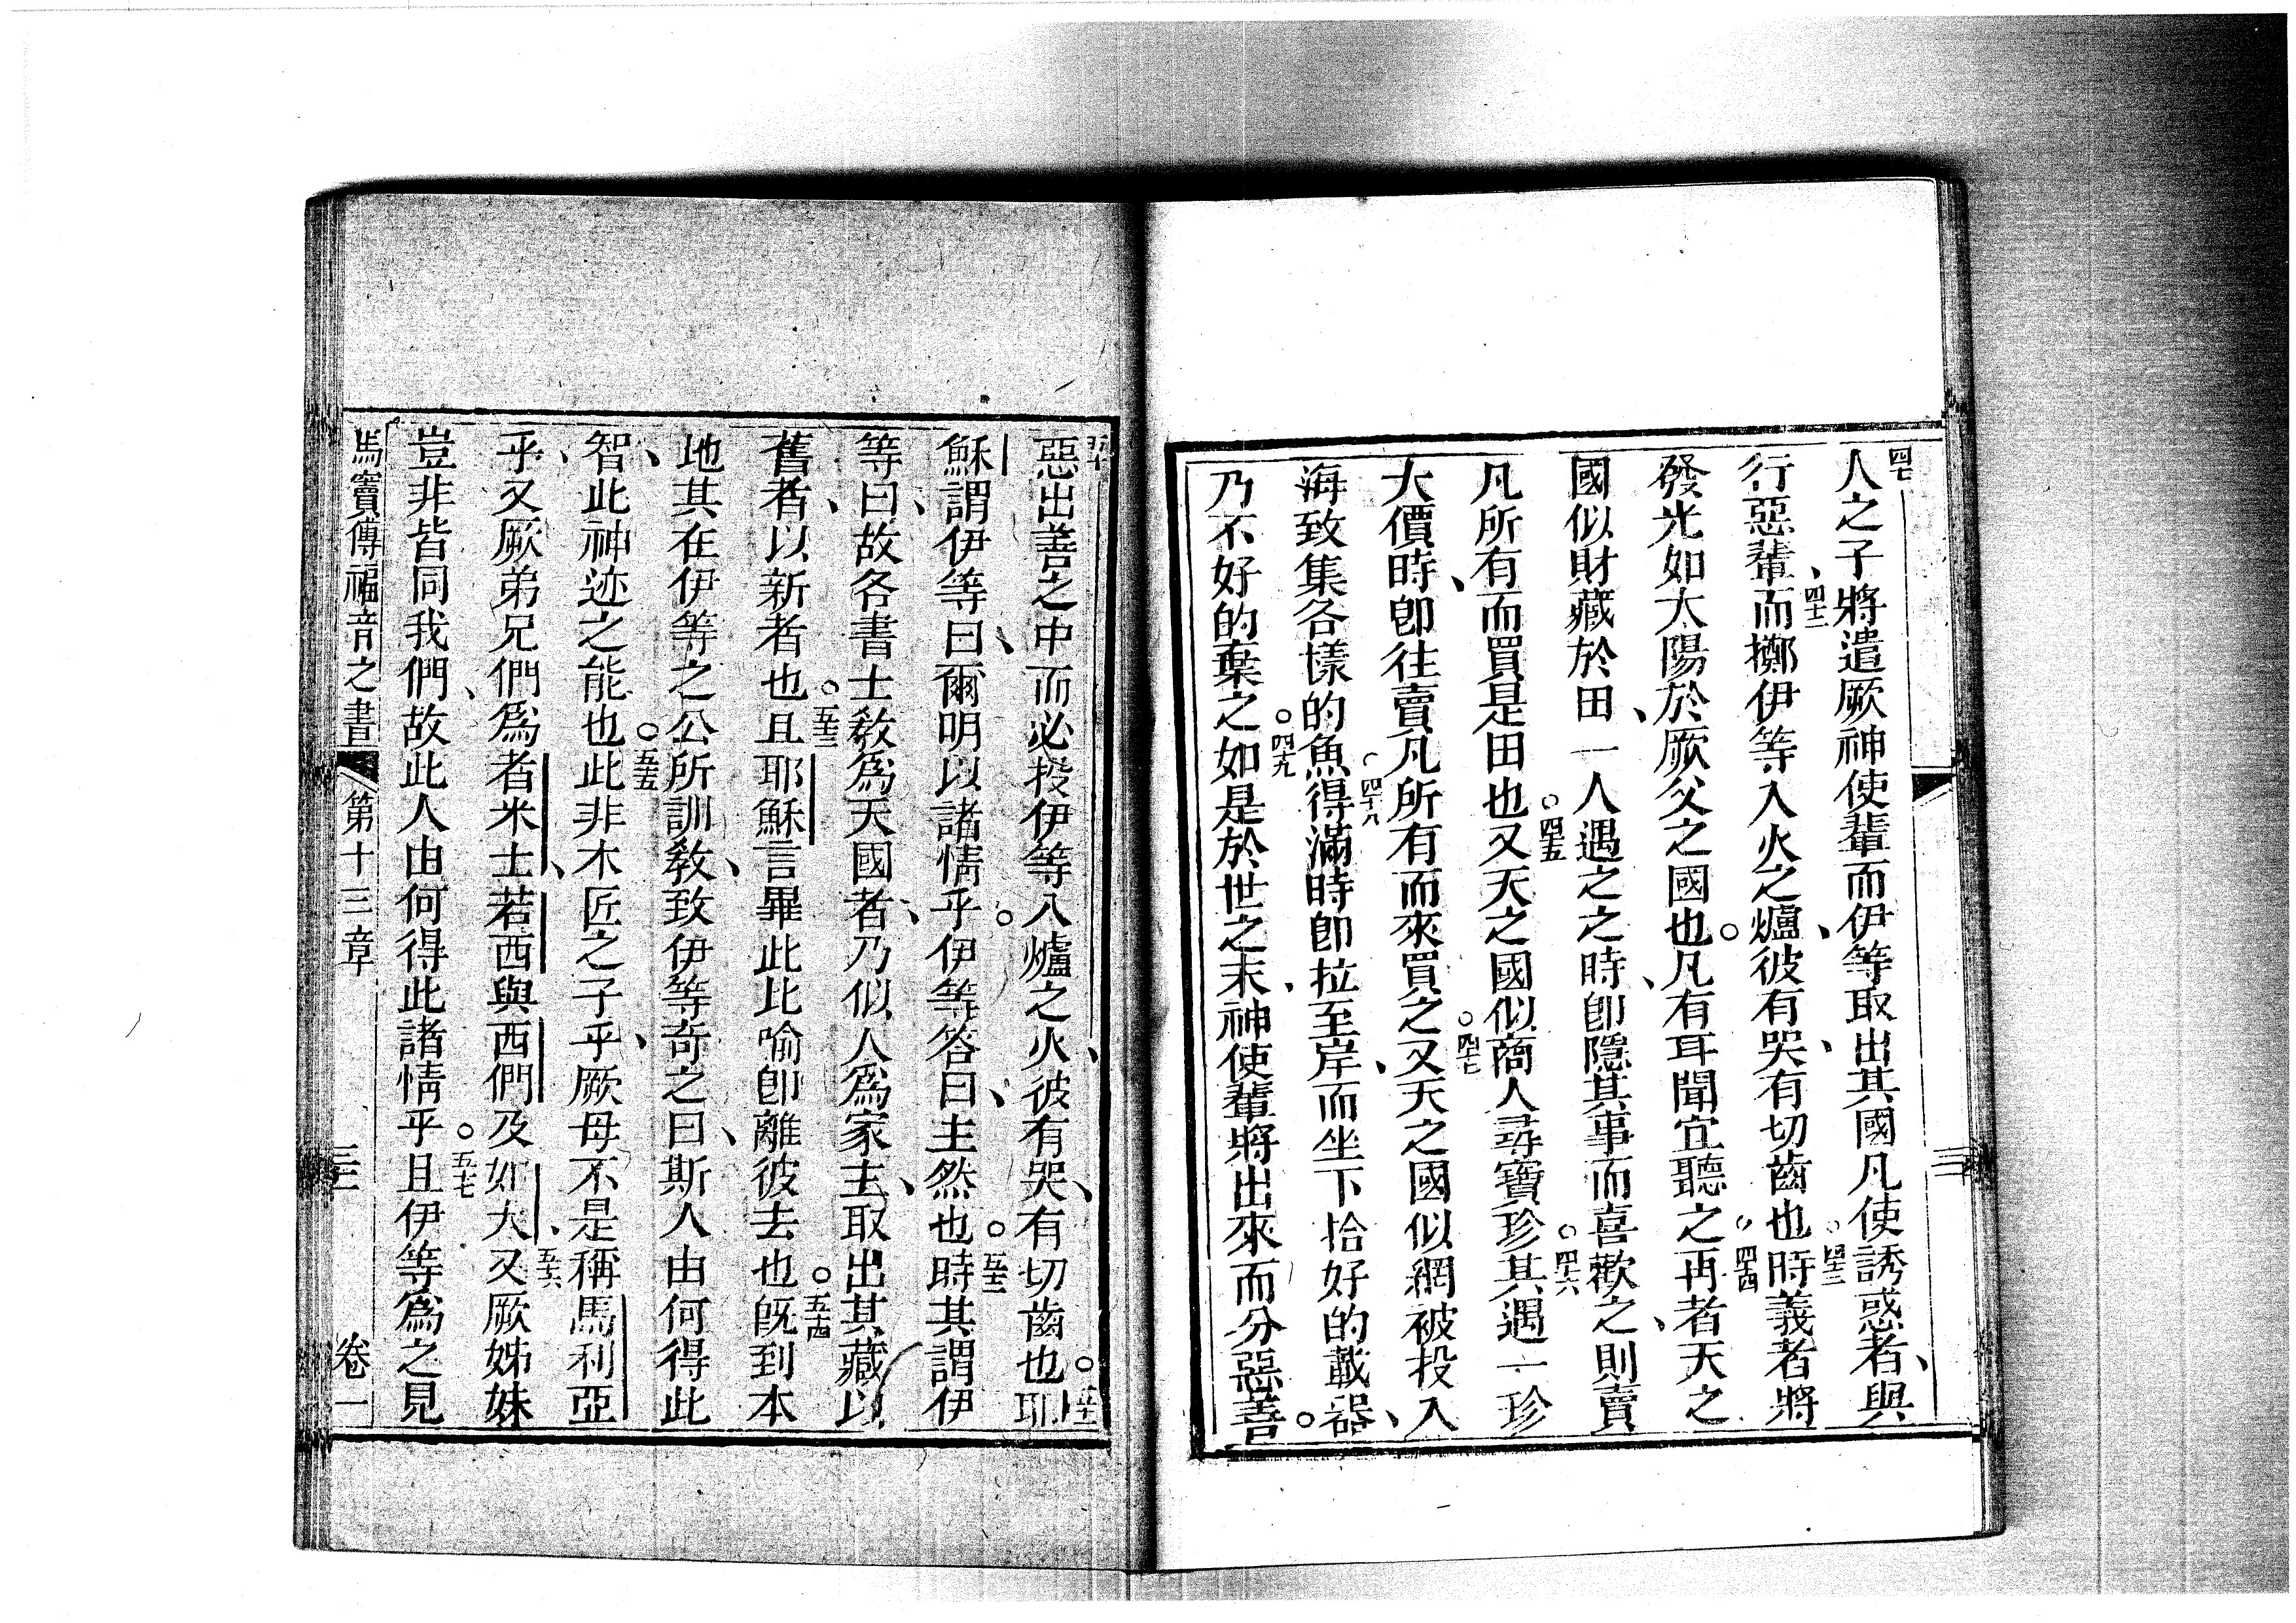 四十一人之子將遣厥神使輩而伊等取出其國凡使誘惑者、與
行惡輩、四十二而擲伊等入火之爐、彼有哭、有切齒也。四十三時義者將
發光如太陽於厥父之國也。凡有耳聞宜聽之。四十四再者天之
國似財藏於田、一人遇之之時、即隱其事而喜歡之、則賣
凡所有而買是田也。四十五又天之國似商人尋寶珍。四十六其遇一珍
大價時、即往賣凡所有而來買之。四十七又天之國似網被投入
海致集各樣的魚。四十八得滿時即拉至岸、而坐下拾好的載器、
乃不好的棄之。四十九如是於世之末、神使輩將出來而分惡善。
五十惡出善之中而必投伊等入爐之火、彼有哭、有切齒也。五十一耶
穌謂伊等曰、爾明以諸情乎。伊等答曰、主然也。五十二時其謂伊
等曰、故各書士教為天國者、乃似人為家主、取出其藏以
舊者、以新者也。五十三且耶穌言畢此比喻即離彼去也。五十四既到本
地其在伊等之公所訓教、致伊等奇之曰、斯人由何得此
智、此神迹之能也。五十五此非木匠之子乎、厥母不是稱馬利亞
乎、又厥弟兄們為者米士、若西與西們及如大、五十六又厥姊妹
豈非皆同我們、故此人由何得此諸情乎。五十七且伊等為之見
馬竇傳福音之書 第十三章 三十三 卷一